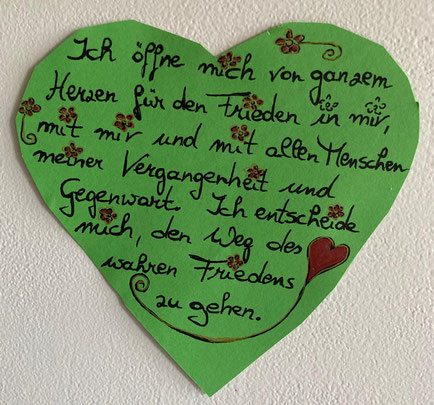 Ich öffne mich von ganzem
Herzen für den Frieden in mir,
mit mir und mit allen Menschen
meiner Vergangenheit und
Gegenwart. Ich entscheide
mich, den Weg des
wahren Friedens
zu gehen.